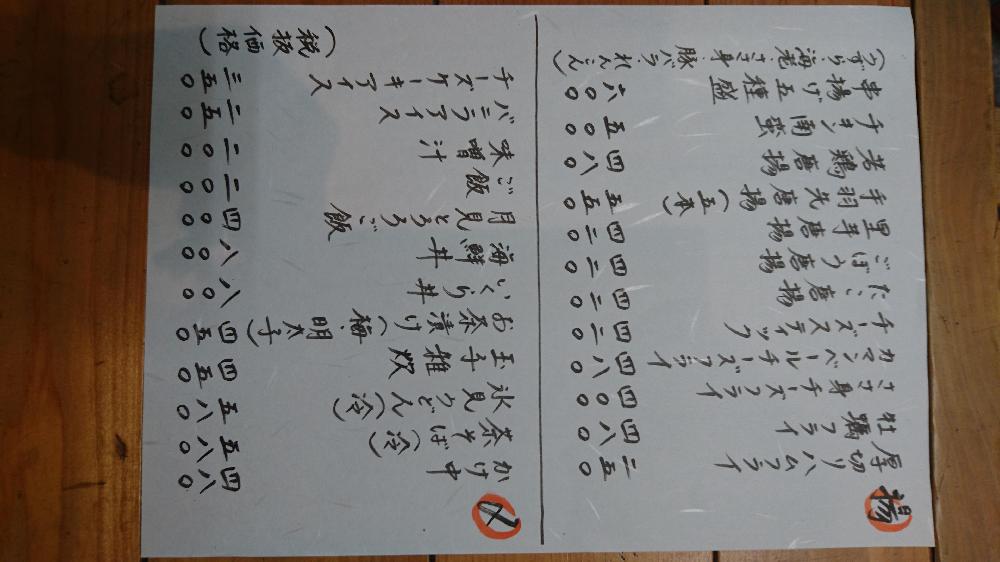 揚
厚切りハムフライ 二五〇
牡蠣フライ 四八〇
ささ身チーズフライ 四〇〇
カマンベールチーズフライ 四八〇
チーズスティック 四二〇
たこ唐揚 四二〇
ごぼう唐揚 四二〇
里芋唐揚 四二〇
手羽先唐揚(五本) 五五〇
若鶏唐揚 四八〇
チキン南蛮 五〇〇
串揚げ五種盛 六〇〇
(うずら、海老、ささ身、豚バラ、れんこん)
〆
かけ中 四八〇
茶そば(冷) 五八〇
氷見うどん(冷) 五八〇
玉子雑炊 四五〇
お茶漬け(梅、明太子) 四五〇
いくら丼 八〇〇
海鮮丼 八〇〇
月見とろろご飯 四〇〇
ご飯 二〇〇
味噌汁 二〇〇
バニラアイス 二五〇
チーズケーキアイス 三五〇
(税抜価格)